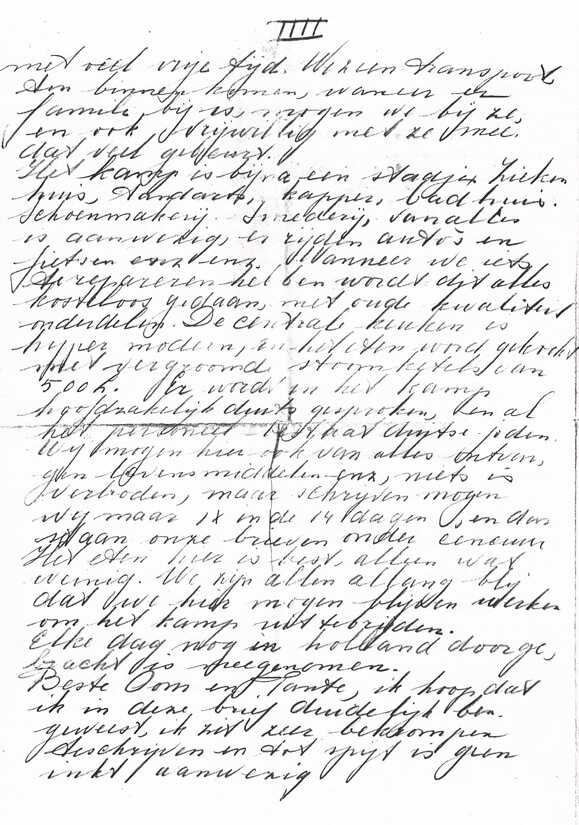 IIII
met veel vrije tijd. Als een transport
den binnen komen, waneer er
familie bij is, mogen we bij ze,
en ook vrijwillig met ze mee.
dat veel gebeurt.
Het kamp is bijna een stadje. Zieken
huis, tandarts, kapper, badhuis.
Schoenmakerij. Smederij, van alles
is aanwezig, er rijden auto's en
fietsen enz enz. Wanneer we iets
te repareren hebben wordt dit alles
kosteloos gedaan, met oude kwaliteit
onderdelen. De centrale keuken is
hyper modern, en het eten word gekookt
met vergroomde stoomketels van
500 L. Er word in het kamp
hoofdzakelijk duits gesproken, en al
het personeel bestaat duitse joden.
Wij mogen hier ook van alles ontvan,
gen levensmiddelen enz, niets is
verboden, maar schrijven mogen
wij maar 1x in de 14 dagen, en dan
staan onze brieven onder censuur
Het eten hier is best, alleen wat
weinig. We zijn allen allang blij
dat we hier mogen blijven werken
om het kamp uit te breiden.
Elke dag nog in holland doorge,
bracht is meegenomen.
Beste Oom en Tante, ik hoop dat
ik in deze brief duidelijk ben
geweest, ik zit zeer bekrompen
te schrijven en tot spijt is geen
inkt aanwezig